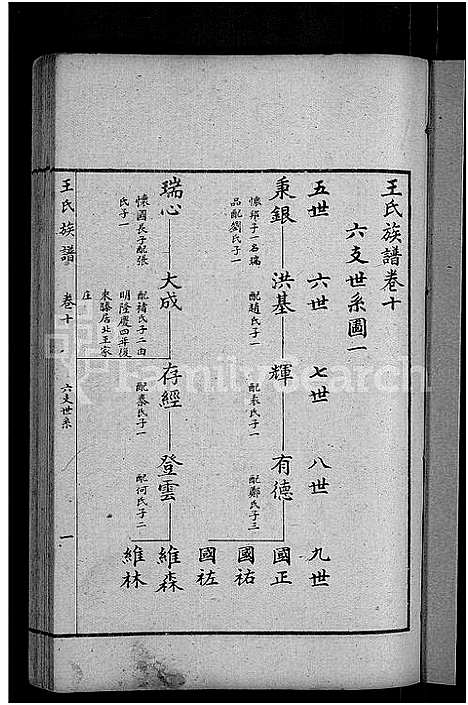 王氏族譜卷十
六支世系圖一
五世 六世 七世 八世 九世
秉銀 洪基 輝 有德 國正
懷邦子一名瑞
品配劉氏子一
配趙氏子一
配袁氏子一
配鄭氏子三
國祐
國祜
瑞心 大成 存經 登雲 維森
懷國長子配張
氏子一
配禇氏子二由
明隆慶四年復
東滕居北王家
庄
配秦氏子一
配何氏子二
維林
王氏族譜 卷十 六支世系 一
FamilySearch